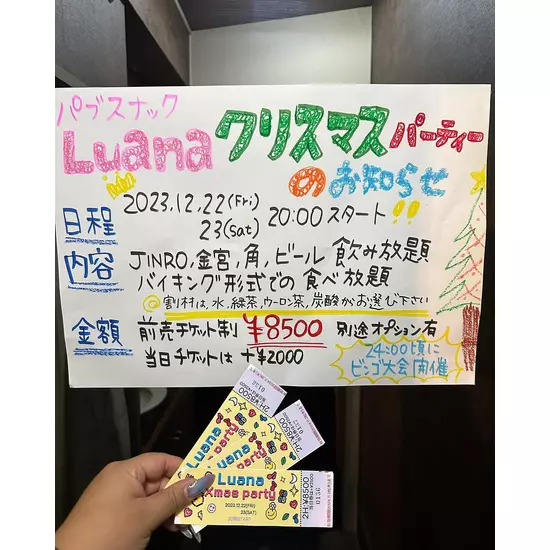 パブスナック
Luana クリスマスパーティー
のお知らせ
日程 2023.12.22(Fri)
23(Sat) 20:00スタート!!
内容 JINRO,金宮,角,ビール 飲み放題
バイキング形式での食べ放題
◎割材は,水,緑茶,ウーロン茶,炭酸からお選び下さい
金額 前売チケット制 ¥8500 別途オプション有
当日チケットは +¥2000
24:00頃に
ビンゴ大会開催
2H:¥8500
2H:¥8500
Luana
Xmas party
2023.12.22(FRI)
23(SAT)
2H:¥8500
0136